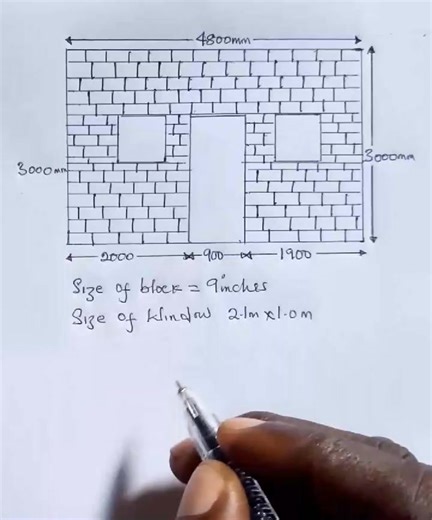 4800mm
3000mm
3000mm
2000
900
1900
Size of block = 9inches
Size of Window 2.1m x 1.0m